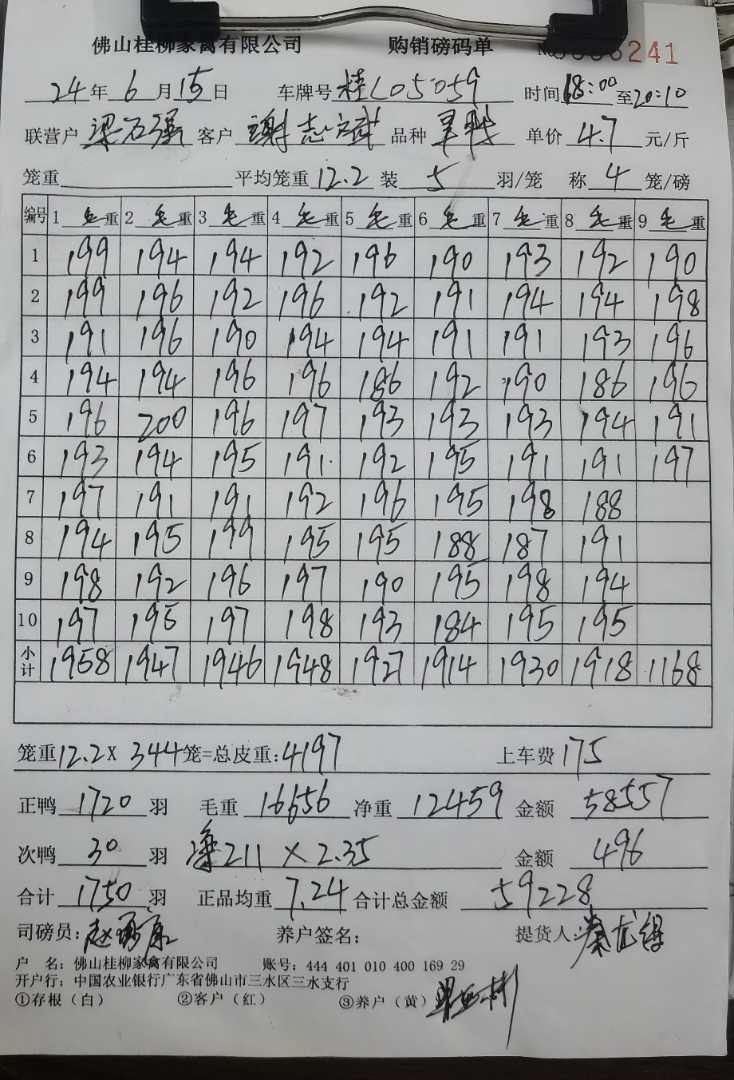 佛山桂柳家禽有限公司 购销磅码单 №0006241
24年 6 月 15 日 车牌号 桂L05059 时间 18:00 至 20:10
联营户 梁石强 客户 谢志斌 品种 单价 4.7 元/斤
笼重 平均笼重 12.2 装 5 羽/笼 称 4 笼/磅
编号 1 毛重 2 毛重 3 毛重 4 毛重 5 毛重 6 毛重 7 毛重 8 毛重 9 毛重
1 199 194 194 192 196 190 193 192 190
2 199 196 192 196 192 191 194 194 198
3 191 196 190 194 194 191 191 193 196
4 194 194 196 196 186 192 190 186 196
5 196 200 196 197 193 193 193 194 191
6 193 194 195 191 192 195 191 191 197
7 197 191 191 192 196 195 198 188
8 194 195 199 195 195 188 187 191
9 198 192 196 197 190 195 198 194
10 197 195 197 198 193 184 195 195
小计 1958 1947 1946 1948 1927 1914 1930 1918 1168
笼重 12.2 X 344 笼=总皮重: 4197 上车费 175
正鸭 1720 羽 毛重 16656 净重 12459 金额 58557
次鸭 30 羽 净211 X 2.35 金额 496
合计 1750 羽 正品均重 7.24 合计总金额 59228
司磅员: 养户签名: 提货人:
户 名: 佛山桂柳家禽有限公司 账号: 444 401 010 400 169 29
开户行: 中国农业银行广东省佛山市三水区三水支行
①存根（白） ②客户（红） ③养户（黄）